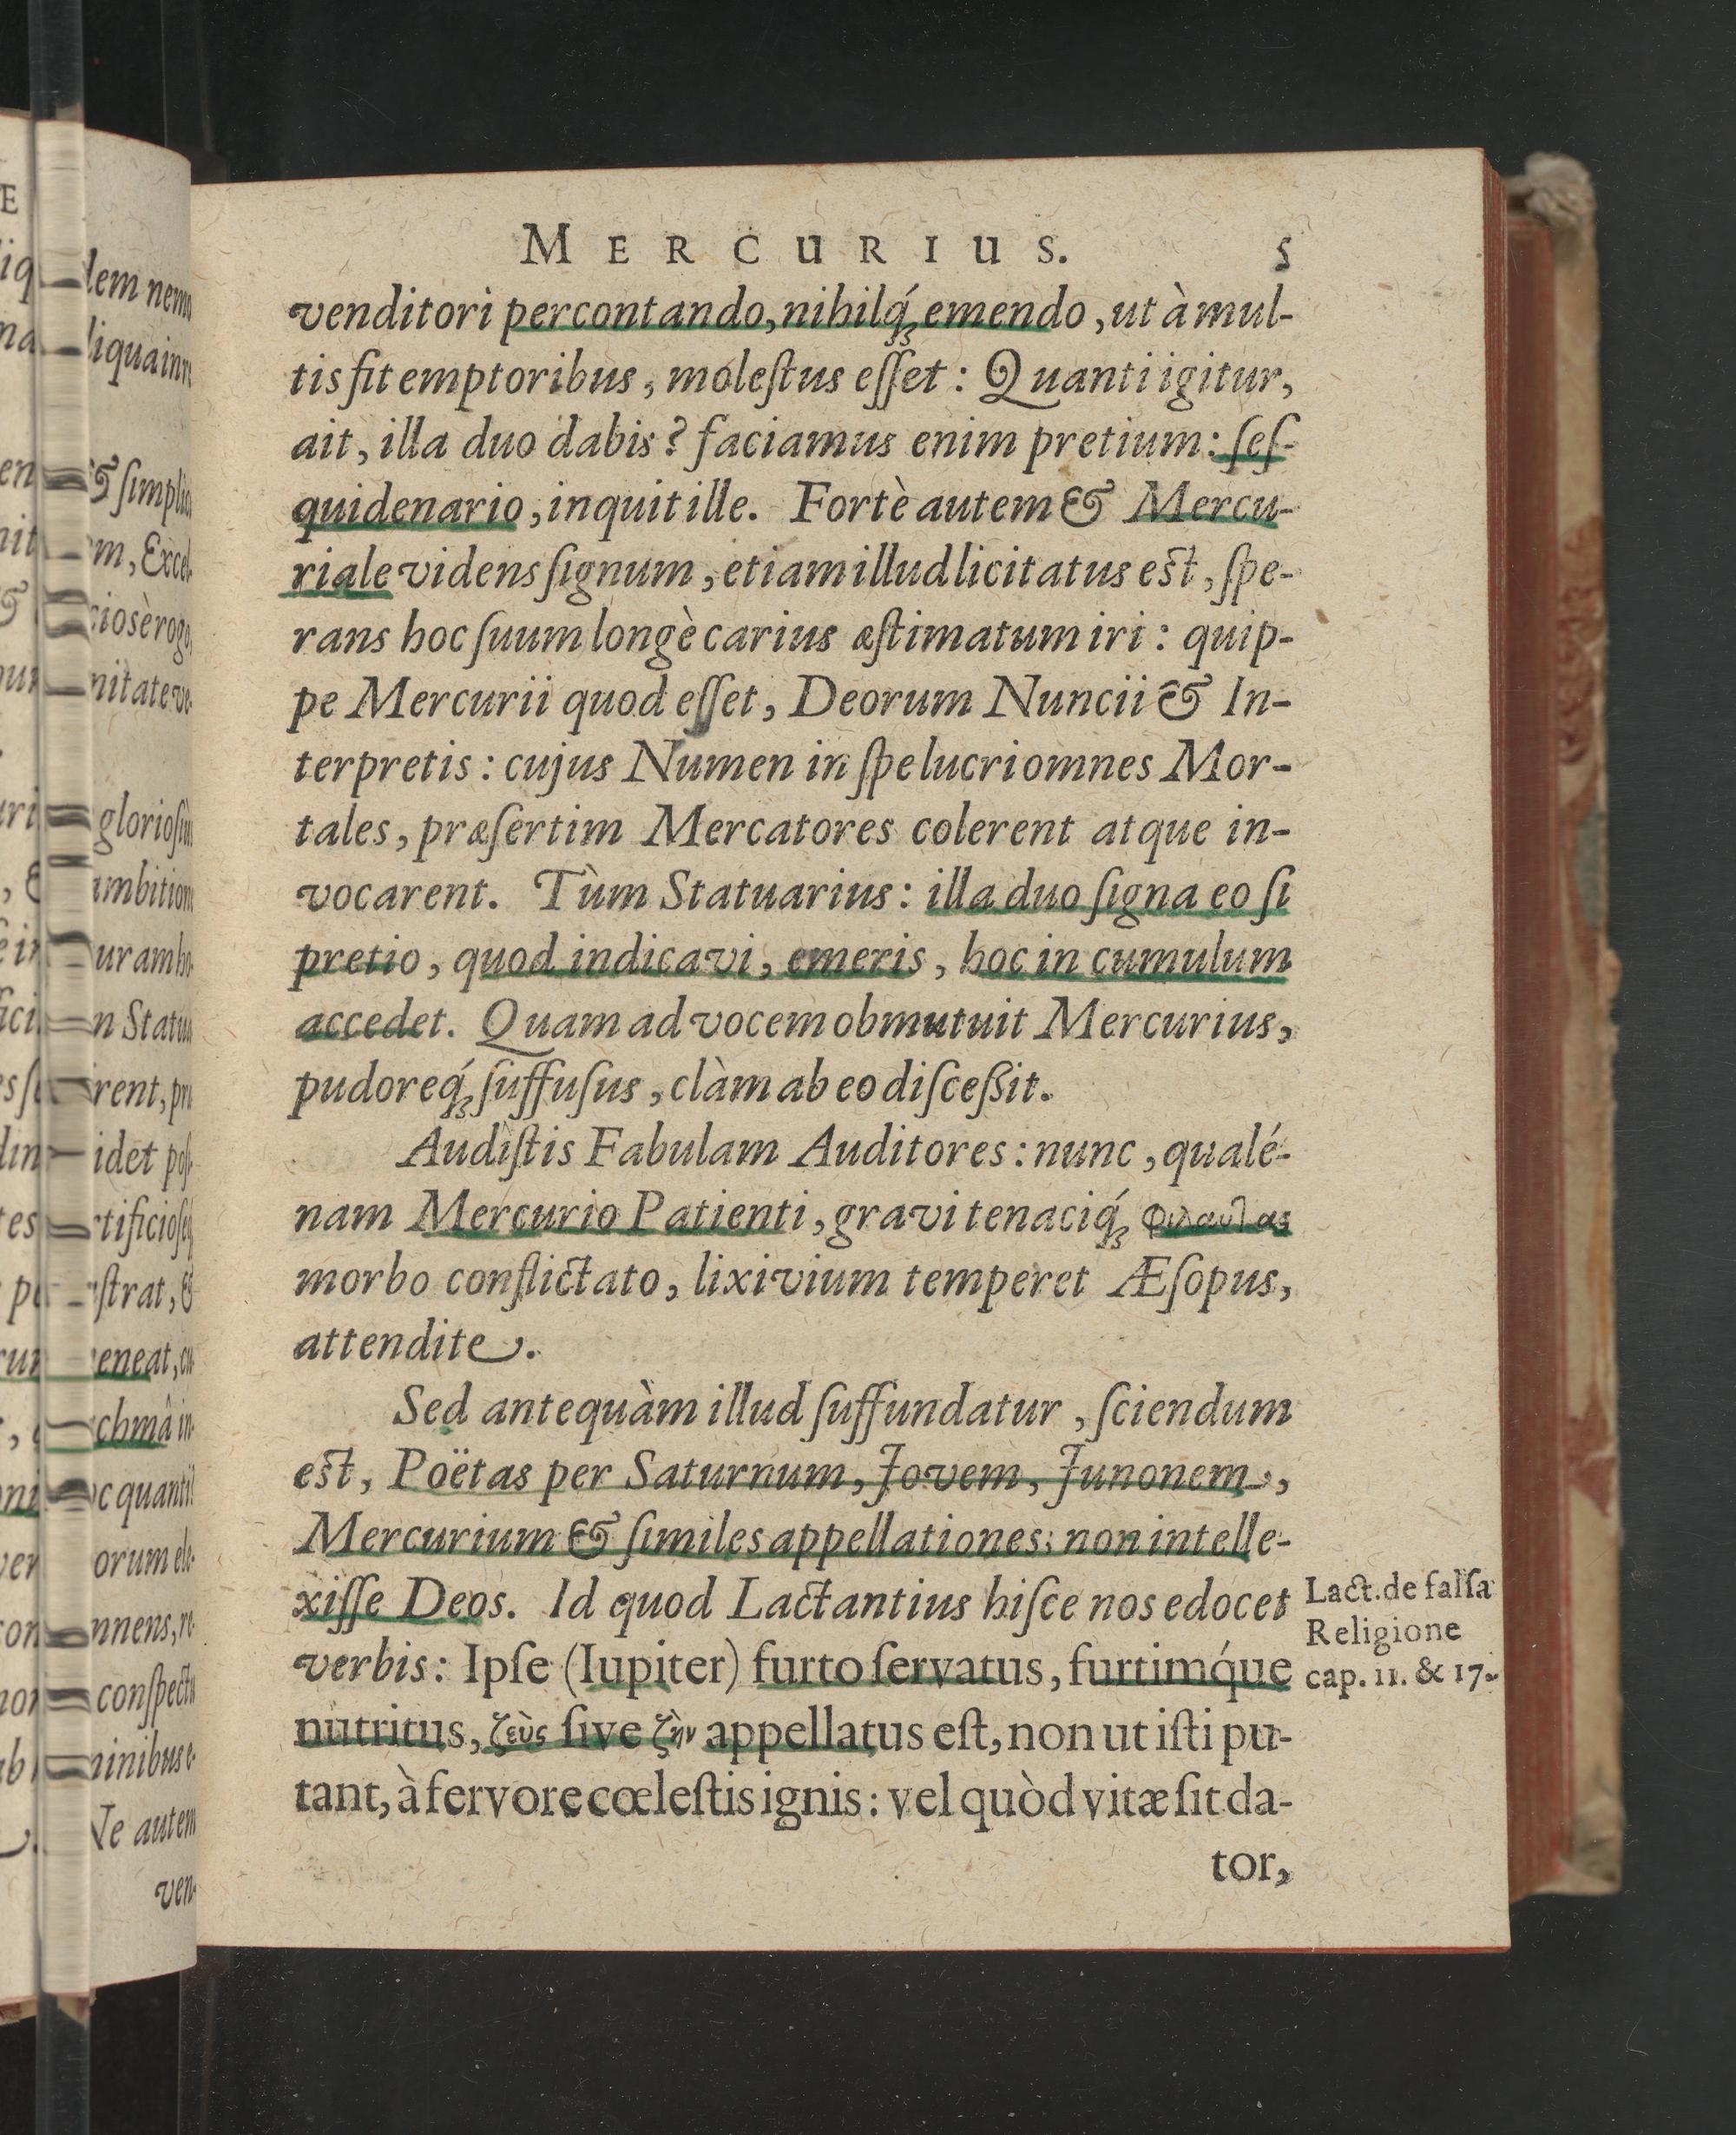 MERCURIUS. 5
venditori percontando, nihilq́; emendo, ut à mul-
tis fit emptoribus, molestus esset: Quanti igitur,
ait, illa duo dabis? faciamus enim pretium: ses-
quidenario, inquit ille. Fortè autem & Mercu-
riale videns signum, etiam illud licitatus est, spe-
rans hoc suum longè carius æstimatum iri: quip-
pe Mercurii quod esset, Deorum Nuncii & In-
terpretis: cujus Numen in spe lucri omnes Mor-
tales, præsertim Mercatores colerent atque in-
vocarent. Tùm Statuarius: illa duo signa eo si
pretio, quod indicavi, emeris, hoc in cumulum
accedet. Quam ad vocem obmutuit Mercurius,
pudoreq́; suffusus, clàm ab eo discessit.
Audìstis Fabulam Auditores: nunc, qualé-
nam Mercurio Patienti, gravi tenaciq́;
morbo conflictato, lixivium temperet Æsopus,
attendite.
Sed antequàm illud suffundatur, sciendum
est, Poëtas per Saturnum, Jovem, Junonem,
Mercurium & similes appellationes; non intelle-
xisse Deos. Id quod Lactantius hisce nos edocet
verbis: Ipse (Iupiter) furto servatus, furtimq́ue
nutritus, ζεὺς sive ζὴν appellatus est, non ut isti pu-
tant, à fervore cœlestis ignis: vel quòd vitæ sit da-
tor,
Lact. de falsa
Religione
cap. 11. & 17.